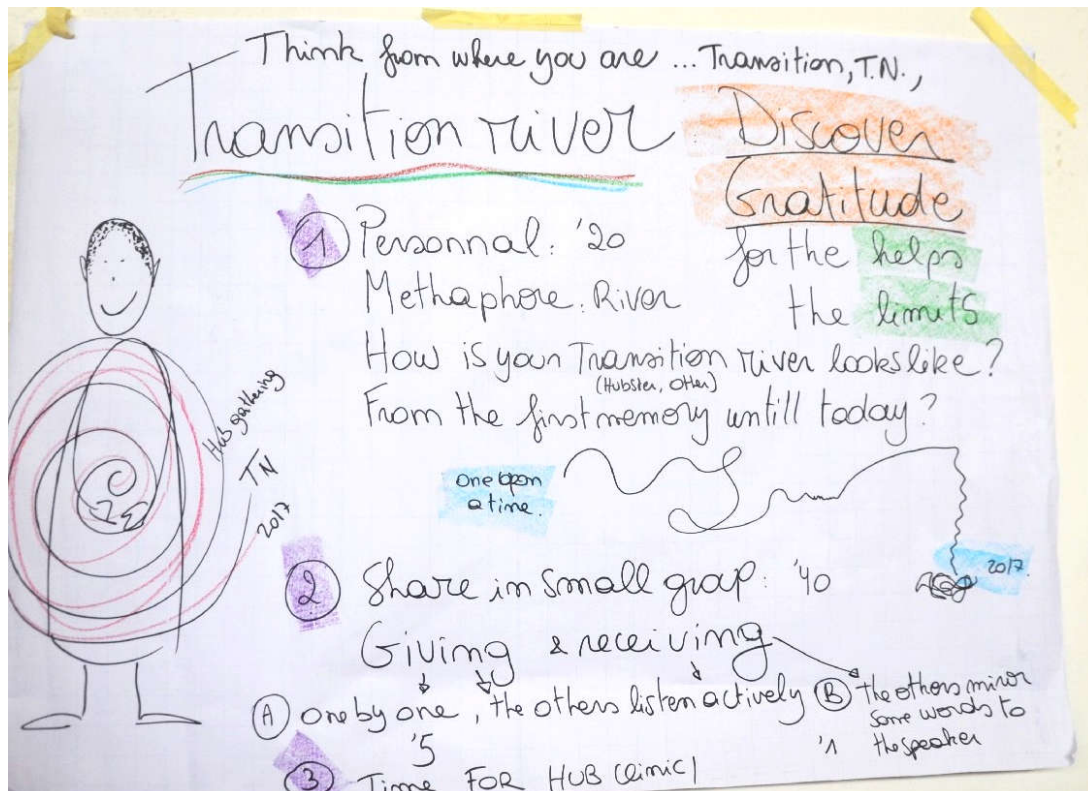 Think from where you are ... Transition, T.N.,
Transition river
Discover
Gratitude
for the helps
the limits
1 Personnal: '20
Methaphore: River
How is your Transition river lookslike?
(Hubster, Other)
From the first memory untill today?
Hub gathering
TN
2017
one upon
a time.
2017.
2 Share in small grap: '40
Giving & receiving
A one by one, the others listen actively
'5
B the others mirror
some words to
'1 the speaker
3 Time FOR HUB Clinic